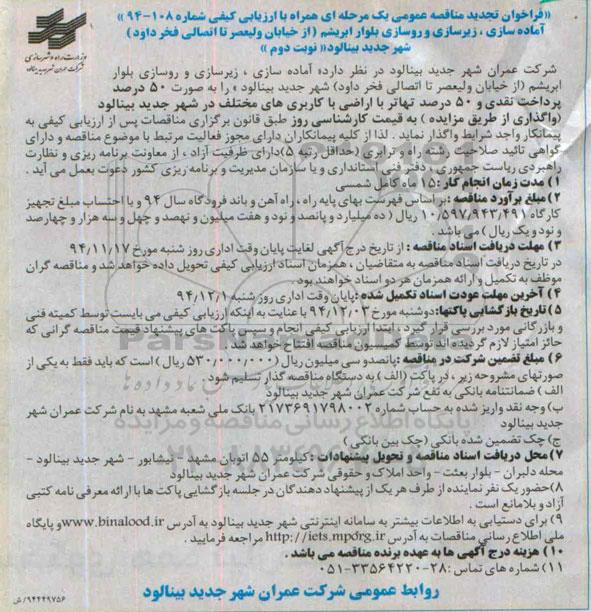 «فراخوان تجدید مناقصه عمومی یک مرحله ای همراه با ارزیابی کیفی شماره ۱۰۸-۹۴»
«آماده سازی ، زیرسازی و روسازی بلوار ابریشم (از خیابان ولیعصر تا اتصالی فخر داود)
شهر جدید بینالود» نوبت دوم»
وزارت راه و شهرسازی
شرکت عمران شهر جدید بینالود
شرکت عمران شهر جدید بینالود در نظر دارد« آماده سازی ، زیرسازی و روسازی بلوار
ابریشم (از خیابان ولیعصر تا اتصالی فخر داود) شهر جدید بینالود » را به صورت ۵۰ درصد
پرداخت نقدی و ۵۰ درصد تهاتر با اراضی با کاربری های مختلف در شهر جدید بینالود
(واگذاری از طریق مزایده ) به قیمت کارشناسی روز طبق قانون برگزاری مناقصات پس از ارزیابی کیفی به
پیمانکار واجد شرایط واگذار نماید . لذا از کلیه پیمانکاران دارای مجوز فعالیت مرتبط با موضوع مناقصه و دارای
گواهی تائید صلاحیت رشته راه و ترابری (حداقل رتبه ۵)دارای ظرفیت آزاد ، از معاونت برنامه ریزی و نظارت
راهبردی ریاست جمهوری ، دفتر فنی استانداری و یا سازمان مدیریت و برنامه ریزی کشور دعوت بعمل می آید .
۱) مدت زمان انجام کار :۱۵ ماه کامل شمسی
۲)مبلغ برآورد مناقصه :بر اساس فهرست بهای پایه راه ، راه آهن و باند فرودگاه سال ۹۴ و با احتساب مبلغ تجهیز
کارگاه ۱۰/۵۹۷/۹۴۳/۴۹۱ ریال ( ده میلیارد و پانصد و نود و هفت میلیون و نهصد و چهل و سه هزار و چهارصد
و نود و یک ریال ) می باشد .
۳) مهلت دریافت اسناد مناقصه : از تاریخ درج آگهی لغایت پایان وقت اداری روز شنبه مورخ ۹۴/۱۱/۱۷
در تاریخ دریافت اسناد مناقصه به متقاضیان ، همزمان اسناد ارزیابی کیفی تحویل داده خواهد شد و مناقصه گران
موظف به تکمیل و ارائه همزمان هر دو اسناد خواهند بود
۴) آخرین مهلت عودت اسناد تکمیل شده :پایان وقت اداری روز شنبه ۹۴/۱۲/۱
۵)تاریخ بازگشایی پاکتها: دوشنبه مورخ ۹۴/۱۲/۰۳ با عنایت به اینکه ارزیابی کیفی می بایست توسط کمیته فنی
و بازرگانی مورد بررسی قرار گیرد ، ابتدا ارزیابی کیفی انجام و سپس پاکت های پیشنهاد قیمت مناقصه گرانی که
حائز امتیاز لازم گردیده اند توسط کمیسیون مناقصه افتتاح خواهد شد
۶) مبلغ تضمین شرکت در مناقصه :پانصد و سی میلیون ریال (۵۳۰/۰۰۰/۰۰۰ ریال ) است که باید فقط به یکی از
صورتهای مشروحه زیر ، در پاکت (الف ) به دستگاه مناقصه گذار تسلیم شود
الف ) ضمانتنامه بانکی به نفع شرکت عمران شهر جدید بینالود
ب ) وجه نقد واریز شده به حساب شماره ۲۱۷۳۶۹۱۷۹۸۰۰۲ بانک ملی شعبه مشهد به نام شرکت عمران شهر
جدید بینالود
ج ) چک تضمین شده بانکی (چک بین بانکی )
۷) محل دریافت اسناد مناقصه و تحویل پیشنهادات : کیلومتر ۵۵ اتوبان مشهد - نیشابور - شهر جدید بینالود -
محله دلبران - بلوار بعثت - واحد املاک و حقوقی شرکت عمران شهر جدید بینالود
۸)حضور یک نفر نماینده از طرف هر یک از پیشنهاد دهندگان در جلسه بازگشایی پاکت ها با ارائه معرفی نامه کتبی
آزاد و بلامانع است .
۹) برای دستیابی به اطلاعات بیشتر به سامانه اینترنتی شهر جدید بینالود به آدرس www.binalood.ir و پایگاه
ملی اطلاع رسانی مناقصات به آدرس http://iets.mporg.ir مراجعه فرمایید .
۱۰) هزینه درج آگهی ها به عهده برنده مناقصه می باشد .
۱۱) شماره های تماس :۲۸-۳۳۵۶۴۲۲۰-۰۵۱
روابط عمومی شرکت عمران شهر جدید بینالود
۹۴۴۴۹۷۵۶/ش